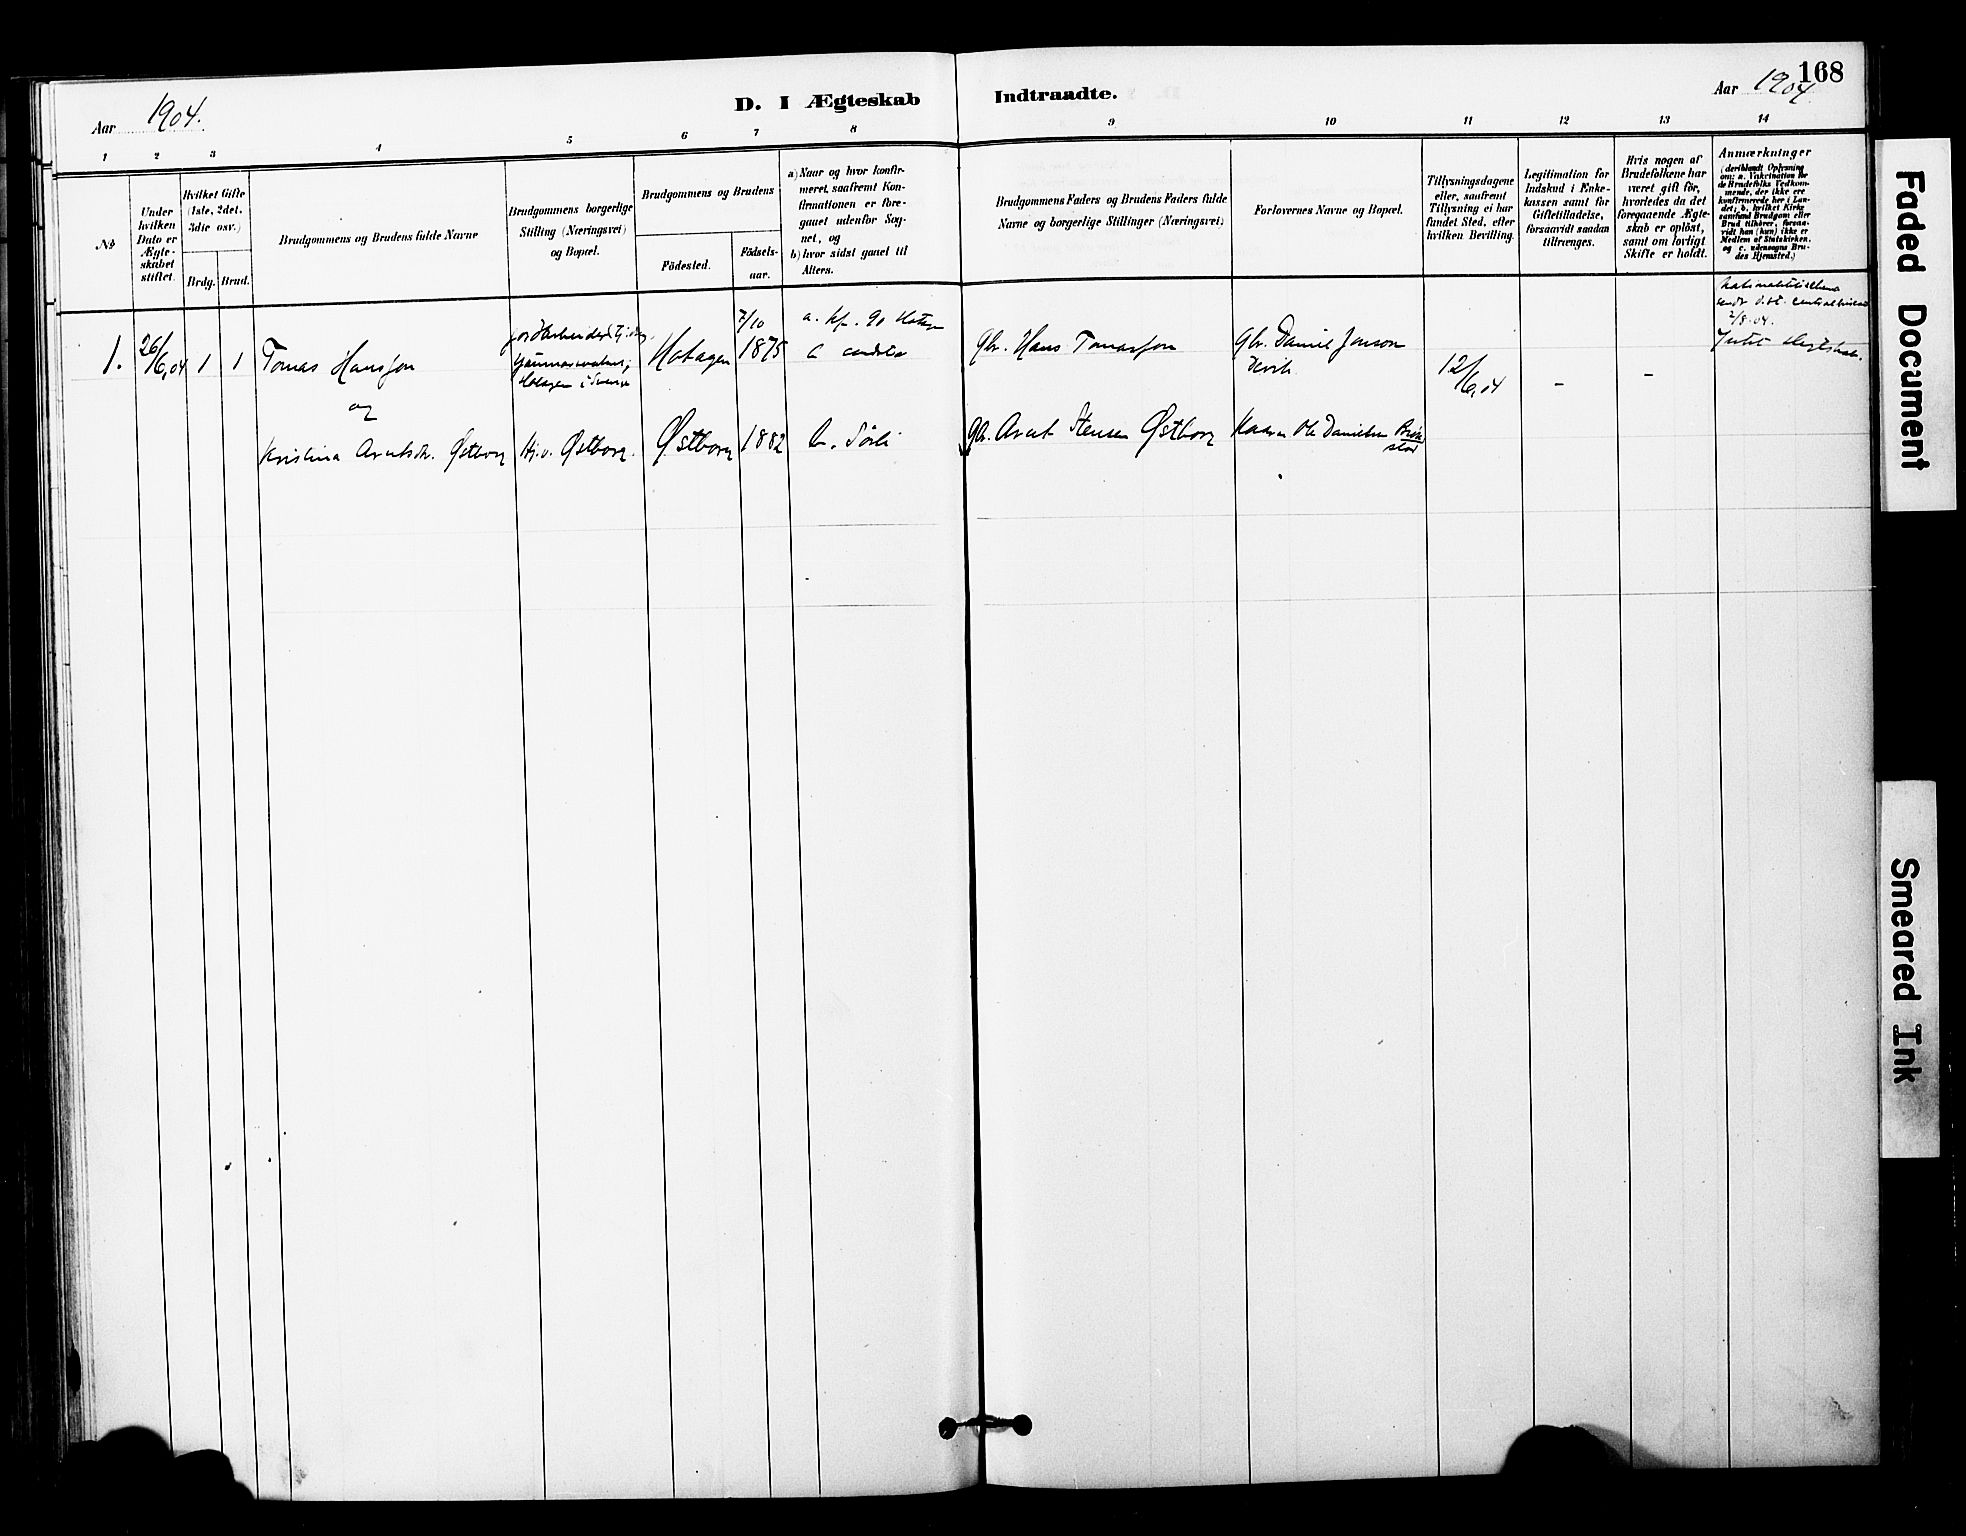 168
Aar 1904.
D. I Ægteskab Indtraadte.
Aar 1904.
1 2 3 4 5 6 7 8 9 10 11 12 13 14
No
Under
hvilken
Dato er
Ægte-
skabet
stiftet.
Hvilket Gifte
(1ste, 2det,
3die osv.)
Brdg. Brud.
Brudgommens og Brudens fulde Navne
Brudgommens borgerlige
Stilling (Næringsvei)
og Bopæl.
Brudgommens og Brudens
Födested.
Födsels-
aar.
a) Naar og hvor konfir-
meret, saafremt Kon-
firmationen er fore-
gaaet udenfor Sog-
net, og
b) hvor sidst gaaet til
Alters.
Brudgommens Faders og Brudens Faders fulde
Navne og borgerlige Stillinger (Næringsvei)
Forlovernes Navne og Bopæl.
Tillysningsdagene
eller, saafremt
Tillysning ei har
fundet Sted, efter
hvilken Bevilling.
Legitimation for
Indskud i Enke-
kassen samt for
Giftetilladelse,
forsaavidt saadan
tiltrenges.
Hvis nogen af
Brudefolkene har
været gift för,
hvorledes da det
foregaaende Ægte-
skab er oplöst,
samt om lovligt
Skifte er holdt.
Anmærkninger
(deriblandt Oplysning
om: a. Vakcination for
de Brudefolks Vedkom-
mende, der ikke ere
konfirmerede her i Lan-
det; b. hvilket Kirke
samfund Brudgom eller
Brud tilhører, forsaa-
vidt han (hun) ikke er
Medlem af Statskirken,
og c. udensogns Bru-
des Hjemsted.)
1. 26/6,04 1 1 Tomas Hansson
Hotagen i
Hotagen 7/10 1875
a. kf. 90 Hotagen
Gbr. Hans Tomasson
Gbr. Daniel Jonson
Devik
12/6,04 - -
2/8.04.
og
Kristina Arntsdr. Østborg Hj.v. Østborg. Østborg 1882 b. Sörli
Gbr. Arnt Stensen Østborg
Ole Danielsen
Faded Document
Smeared Ink